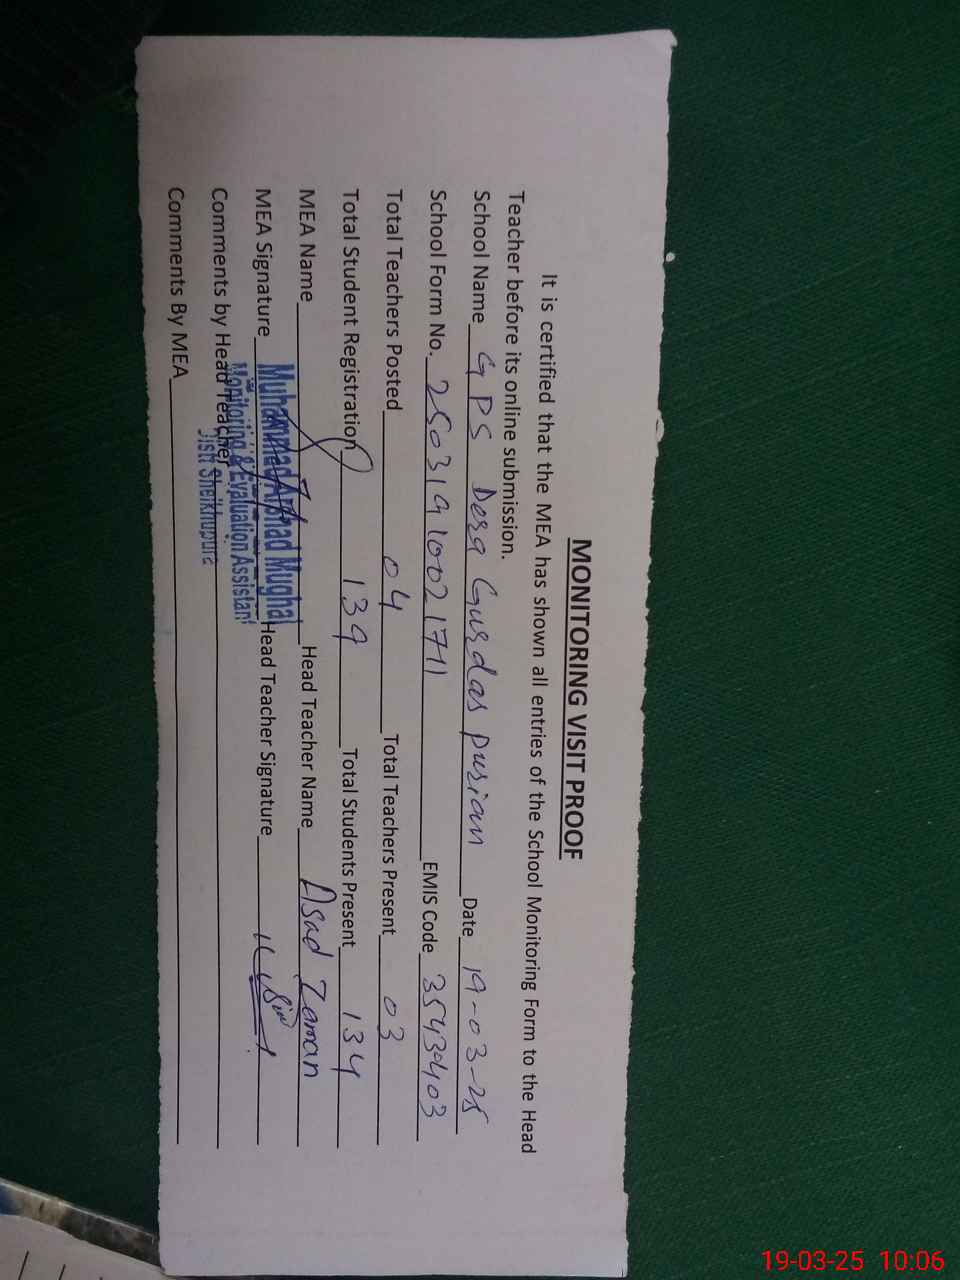 MONITORING VISIT PROOF
It is certified that the MEA has shown all entries of the School Monitoring Form to the Head
Teacher before its online submission.
School Name GPS Dera Gurdas purian Date 19-03-25
School Form No. 25031910021711 EMIS Code
Total Teachers Posted 04 Total Teachers Present 03
Total Student Registration 139 Total Students Present 134
MEA Name Head Teacher Name Asad Zaman
Muhammad Arshad Mughal
MEA Signature Head Teacher Signature
Monitoring & Evaluation Assistant
Comments by Head Teacher
Distt Sheikhupura
Comments By MEA
19-03-25 10:06